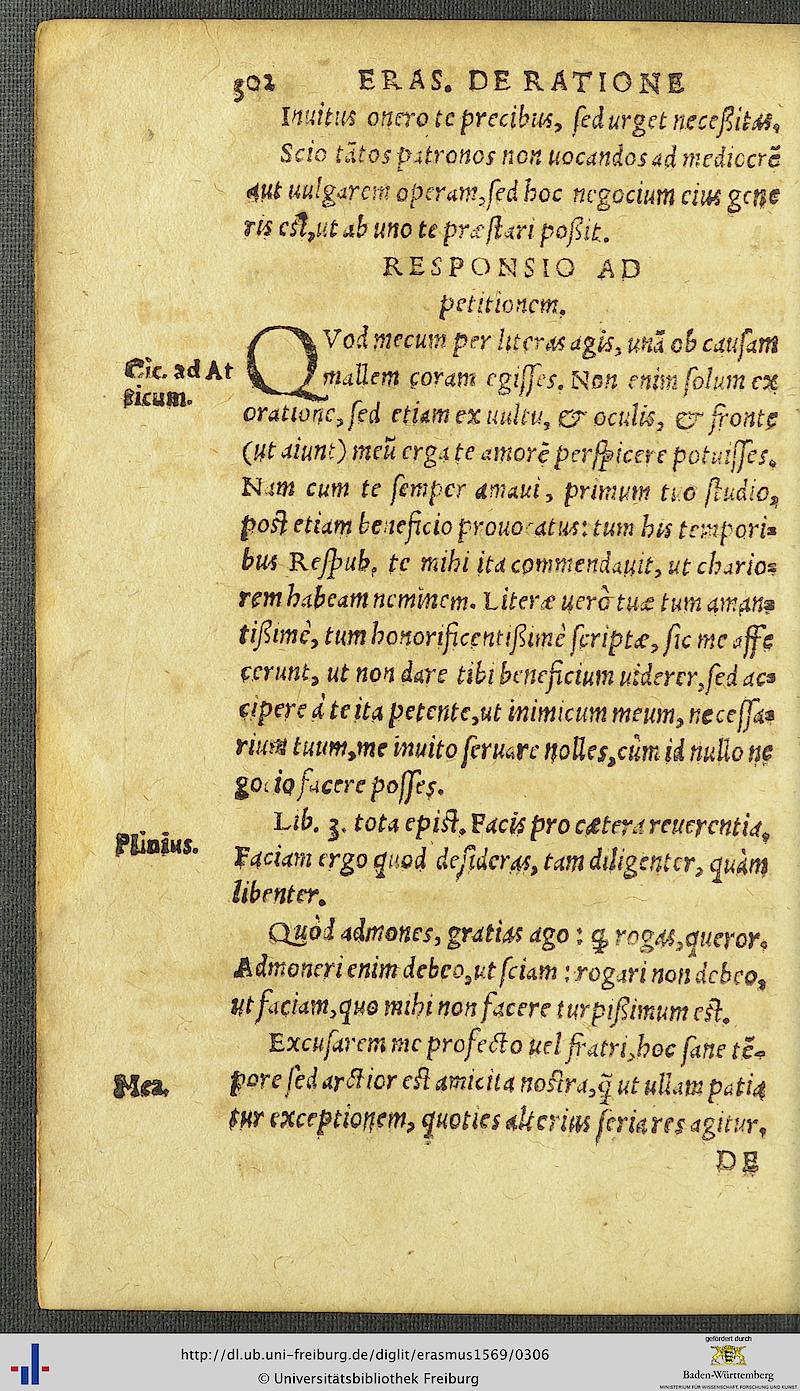 302 ERAS. DE RATIONE
Inuitus onero te precibus, ſed urget neceßitas.
Scio tātos patronos non uocandos ad mediocrē
aut uulgarem operam, ſed hoc negocium eius gene
ris eſt, ut ab uno te præſtari poßit.
RESPONSIO AD
petitionem.
Cic. ad At
ticum.
QVod mecum per literas agis, unā ob cauſam
mallem coram egiſſes. Non enim ſolum ex
oratione, ſed etiam ex uultu, & oculis, & fronte
(ut aiunt) meū erga te amorē perſpicere potuiſſes.
Nam cum te ſemper amaui, primum tuo ſtudio,
poſt etiam beneficio prouocatus: tum his tempori-
bus Reſpub. te mihi ita commendauit, ut chario-
rem habeam neminem. Literæ uerò tuæ tum aman-
tißimè, tum honorificentißimè ſcriptæ, ſic me affe
cerunt, ut non dare tibi beneficium uiderer, ſed ac-
cipere à te ita petente, ut inimicum meum, neceſſa-
rium tuum, me inuito ſeruare nolles, cùm id nullo ne
gocio facere poſſes.
Plinius.
Lib. 3. tota epiſt. Facis pro cætera reuerentia.
Faciam ergo quod deſideras, tam diligenter, quàm
libenter.
Quòd admones, gratias ago: ꝙ rogas, queror.
Admoneri enim debeo, ut ſciam: rogari non debeo,
ut faciam, quo mihi non facere turpißimum eſt.
Mea.
Excuſarem me profecto uel fratri, hoc ſane tē-
pore ſed arctior eſt amicitia noſtra, q̃ ut ullam patia
tur exceptionem, quoties alterius ſeria res agitur.
DE
http://dl.ub.uni-freiburg.de/diglit/erasmus1569/0306
© Universitätsbibliothek Freiburg
gefördert durch
Baden-Württemberg
MINISTERIUM FÜR WISSENSCHAFT, FORSCHUNG UND KUNST